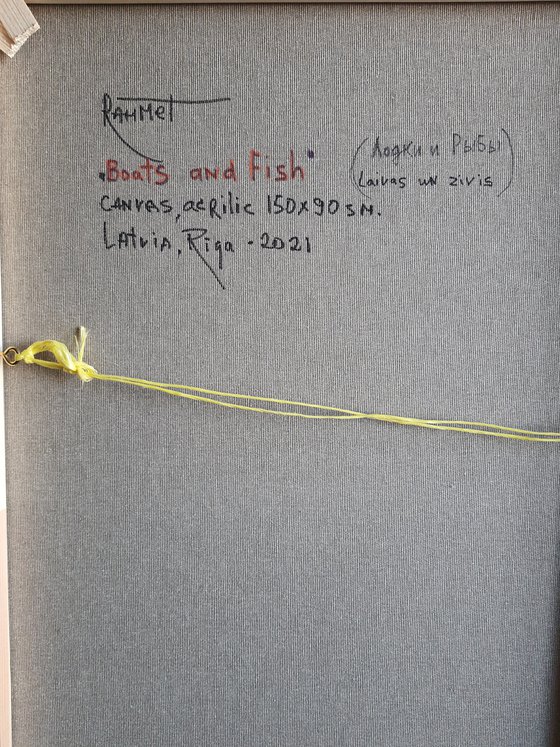 RAHMET
„Boats and Fish"
(Лодки и Рыбы
Laivas uN zivis)
CANVAS, acRilic 150x90 sM.
LAtviA, Riga - 2021